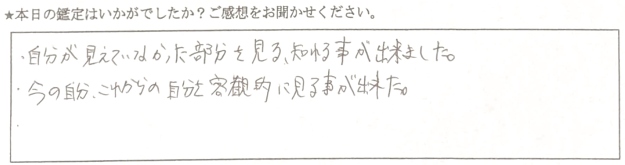 ★本日の鑑定はいかがでしたか？ご感想をお聞かせください。
・自分が見えていなかった部分を見る、知れる事が出来ました。
・今の自分、これからの自分を客観的に見る事が出来た。
・